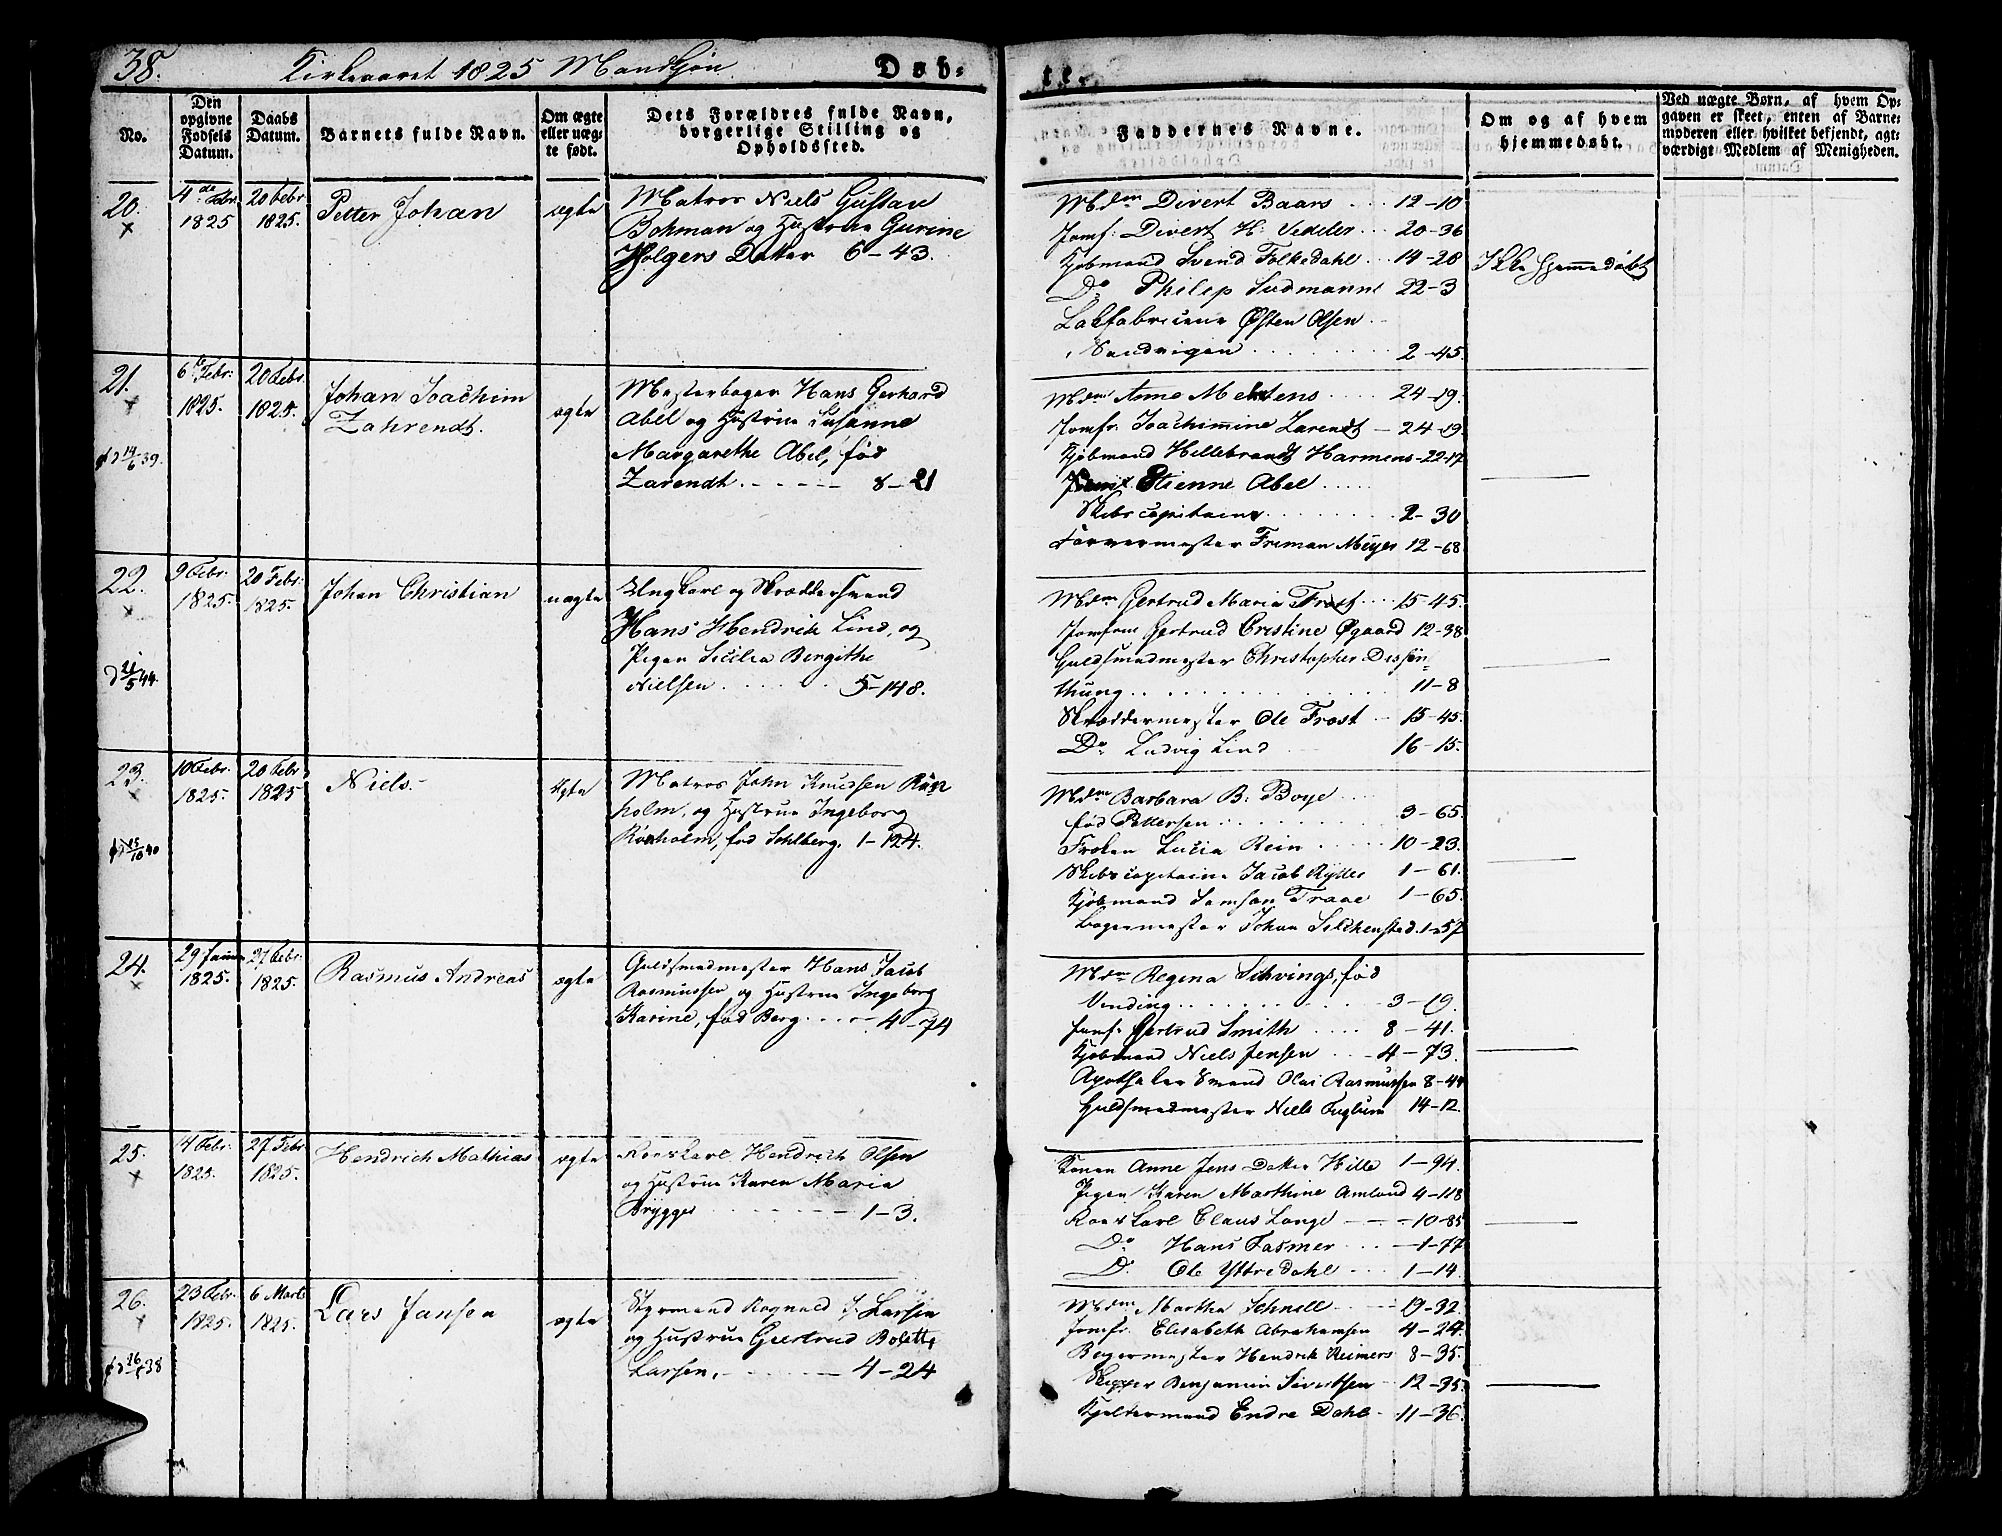 38. Kirkeaaret 1825 Mandkjøn. Døb-
te.
No.
Den opgivne Fødsels Datum.
Daabs Datum.
Barnets fulde Navn.
Om ægte eller uægte født.
Dets Forældres fulde Navn, borgerlige Stilling og Opholdssted.
Faddernes Navne.
Om og af hvem hjemmedøbt.
Ved uægte Børn, af hvem Opgaven er skeet, enten af Barnemoderen eller hvilket bekjendt, agtværdigt Medlem af Menigheden.
20.
×
4de Febr. 1825
20 Febr 1825.
Petter Johan
ægte
Matros Niels Gustav
Bohman og Hustrue Gurine
Holgers Datter 6-43.
Mdm Divert Baars 12-10
Jomf: Divert H: Vedeler 20-36
Kjøbmand Svend Folkedahl 14-28
Do Philip Sudmann 22-3
Lakfabricant Østen Olsen
Sandvigen 2-45.
Ikke Hjemmedøbt
21.
×
6te Febr: 1825.
20 Febr. 1825.
Johan Joachim
Zahrendt.
ægte
Mesterbager Hans Gerhard
Abel og Hustrue Susanne
Margarethe Abel, fød
Zarendt. 8-21
19/6 39.
Mdm Anne Mertens 24-19.
Jomfr. Joachimine Zarendt 24-19.
Kjøbmand Hillebrandt Harmens 22-17
Etienne Abel
Skibscapitaine 2-30
Farvermester Friman Meyer 12-68
22.
×
9 Febr. 1825.
20 Febr: 1825.
Johan Christian
uægte
Ungkarl og Skræddersvend
Hans Hendrik Lind, og
Pigen Sicilia Bergithe
Nielsen 5-148.
21/5 44.
Mdm Gertrud Maria Frost 15-45.
Jomfrue Gertrud Cristine Øgaard 12-38
Guldsmedmester Christopher Dissin-
thung 11-8
Skræddermester Ole Frost 15-45.
Do Ludvig Lind 16-15.
23.
×
10 Febr. 1825.
20 Febr 1825
Niels.
Ægte
Matros John Knudsen Røn
holm, og Hustrue Ingeborg
Rønholm, fød Sehlberg. 1-124.
15/10 40
Mdm Barbara B: Boye
fød Pettersen 3-65.
Frøken Lucia Rein 10-23.
Skibscapitaine Jacob Rytter 1-61.
Kjøbmand Samson Traae 1-65.
Bagermester Johan Sildhenstad. 1-57
24.
×
29 Januar 1825.
27 Febr. 1825.
Rasmus Andreas
ægte
Guldsmedmester Hans Jacob
Rasmussen og Hustrue Ingeborg
Karine, fød Berg 4-74
Mdm Regina Schvings, fød
Vending 3-19.
Jomfr Gertrud Smith 8-41.
Kjøbmand Niels Jensen 4-73.
Apotheker Svend Olai Rasmussen 8-44
Guldsmedmester Niels Fuglum 14-12.
25.
×
14 Febr. 1825.
27 Febr 1825.
Hendrich Mathias
ægte
Roerskarl Hendrich Olsen
og Hustrue Karen Maria
Brygger 1-3.
Konen Anne Jens Datter Hille 1-94.
Pigen Karen Marthine Amlund 4-118
Roerskarl Claus Lange 10-85
Do Hans Fasmer 1-77
D. Ole Yttredahl 1-14.
26.
×
23 Febr. 1825.
6 Marts 1825.
Lars Jansen
ægte
Styrmand Rognald J. Larsen
og Hustrue Giertrud Bolette
Larsen. 4-24
16/6 38
Mdm Martha Schnell 19-32.
Jomfr. Elisabeth Abrahamsen 4-24.
Bagermester Hendrik Reimers 8-35.
Skipper Benjamin Sivertsen 12-35.
Kjeldermand Endre Dahl 11-36.